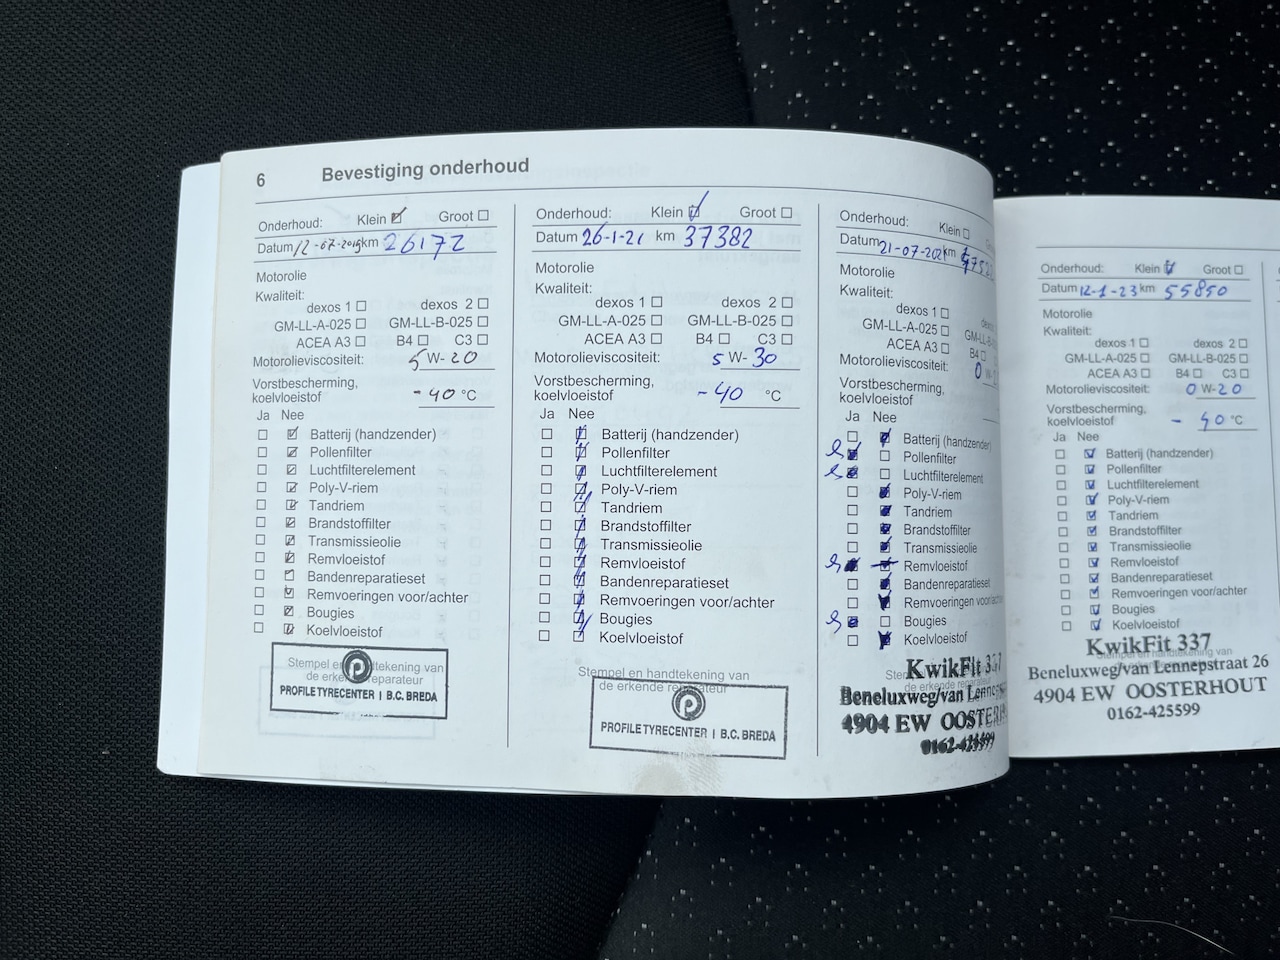 6 Bevestiging onderhoud
Onderhoud: Klein Groot
Datum 12-07-2019 km 26172
Motorolie
Kwaliteit:
dexos 1 dexos 2
GM-LL-A-025 GM-LL-B-025
ACEA A3 B4 C3
Motorolieviscositeit: 5 W-20
Vorstbescherming,
koelvloeistof -40 °C
Ja Nee
Batterij (handzender)
Pollenfilter
Luchtfilterelement
Poly-V-riem
Tandriem
Brandstoffilter
Transmissieolie
Remvloeistof
Bandenreparatieset
Remvoeringen voor/achter
Bougies
Koelvloeistof
Stempel en handtekening van
de erkende reparateur
PROFILE TYRECENTER | B.C. BREDA
Onderhoud: Klein Groot
Datum 26-1-21 km 37382
Motorolie
Kwaliteit:
dexos 1 dexos 2
GM-LL-A-025 GM-LL-B-025
ACEA A3 B4 C3
Motorolieviscositeit: 5 W-30
Vorstbescherming,
koelvloeistof -40 °C
Ja Nee
Batterij (handzender)
Pollenfilter
Luchtfilterelement
Poly-V-riem
Tandriem
Brandstoffilter
Transmissieolie
Remvloeistof
Bandenreparatieset
Remvoeringen voor/achter
Bougies
Koelvloeistof
Stempel en handtekening van
de erkende reparateur
PROFILE TYRECENTER | B.C. BREDA
Onderhoud: Klein
Datum 21-07-2021 km
Motorolie
Kwaliteit:
dexos 1
GM-LL-A-025
ACEA A3 B4
Motorolieviscositeit: 0 W-
Vorstbescherming,
koelvloeistof
Ja Nee
Batterij (handzender)
Pollenfilter
Luchtfilterelement
Poly-V-riem
Tandriem
Brandstoffilter
Transmissieolie
Remvloeistof
Bandenreparatieset
Remvoeringen voor/achter
Bougies
Koelvloeistof
KwikFit 337
Beneluxweg/van
4904 EW
0162-425599
Onderhoud: Klein Groot
Datum 12-1-23 km 55850
Motorolie
Kwaliteit:
dexos 1 dexos 2
GM-LL-A-025 GM-LL-B-025
ACEA A3 B4 C3
Motorolieviscositeit: 0 W-20
Vorstbescherming,
koelvloeistof - 40 °C
Ja Nee
Batterij (handzender)
Pollenfilter
Luchtfilterelement
Poly-V-riem
Tandriem
Brandstoffilter
Transmissieolie
Remvloeistof
Bandenreparatieset
Remvoeringen voor/achter
Bougies
Koelvloeistof
KwikFit 337
Beneluxweg/van Lennepstraat 26
4904 EW OOSTERHOUT
0162-425599